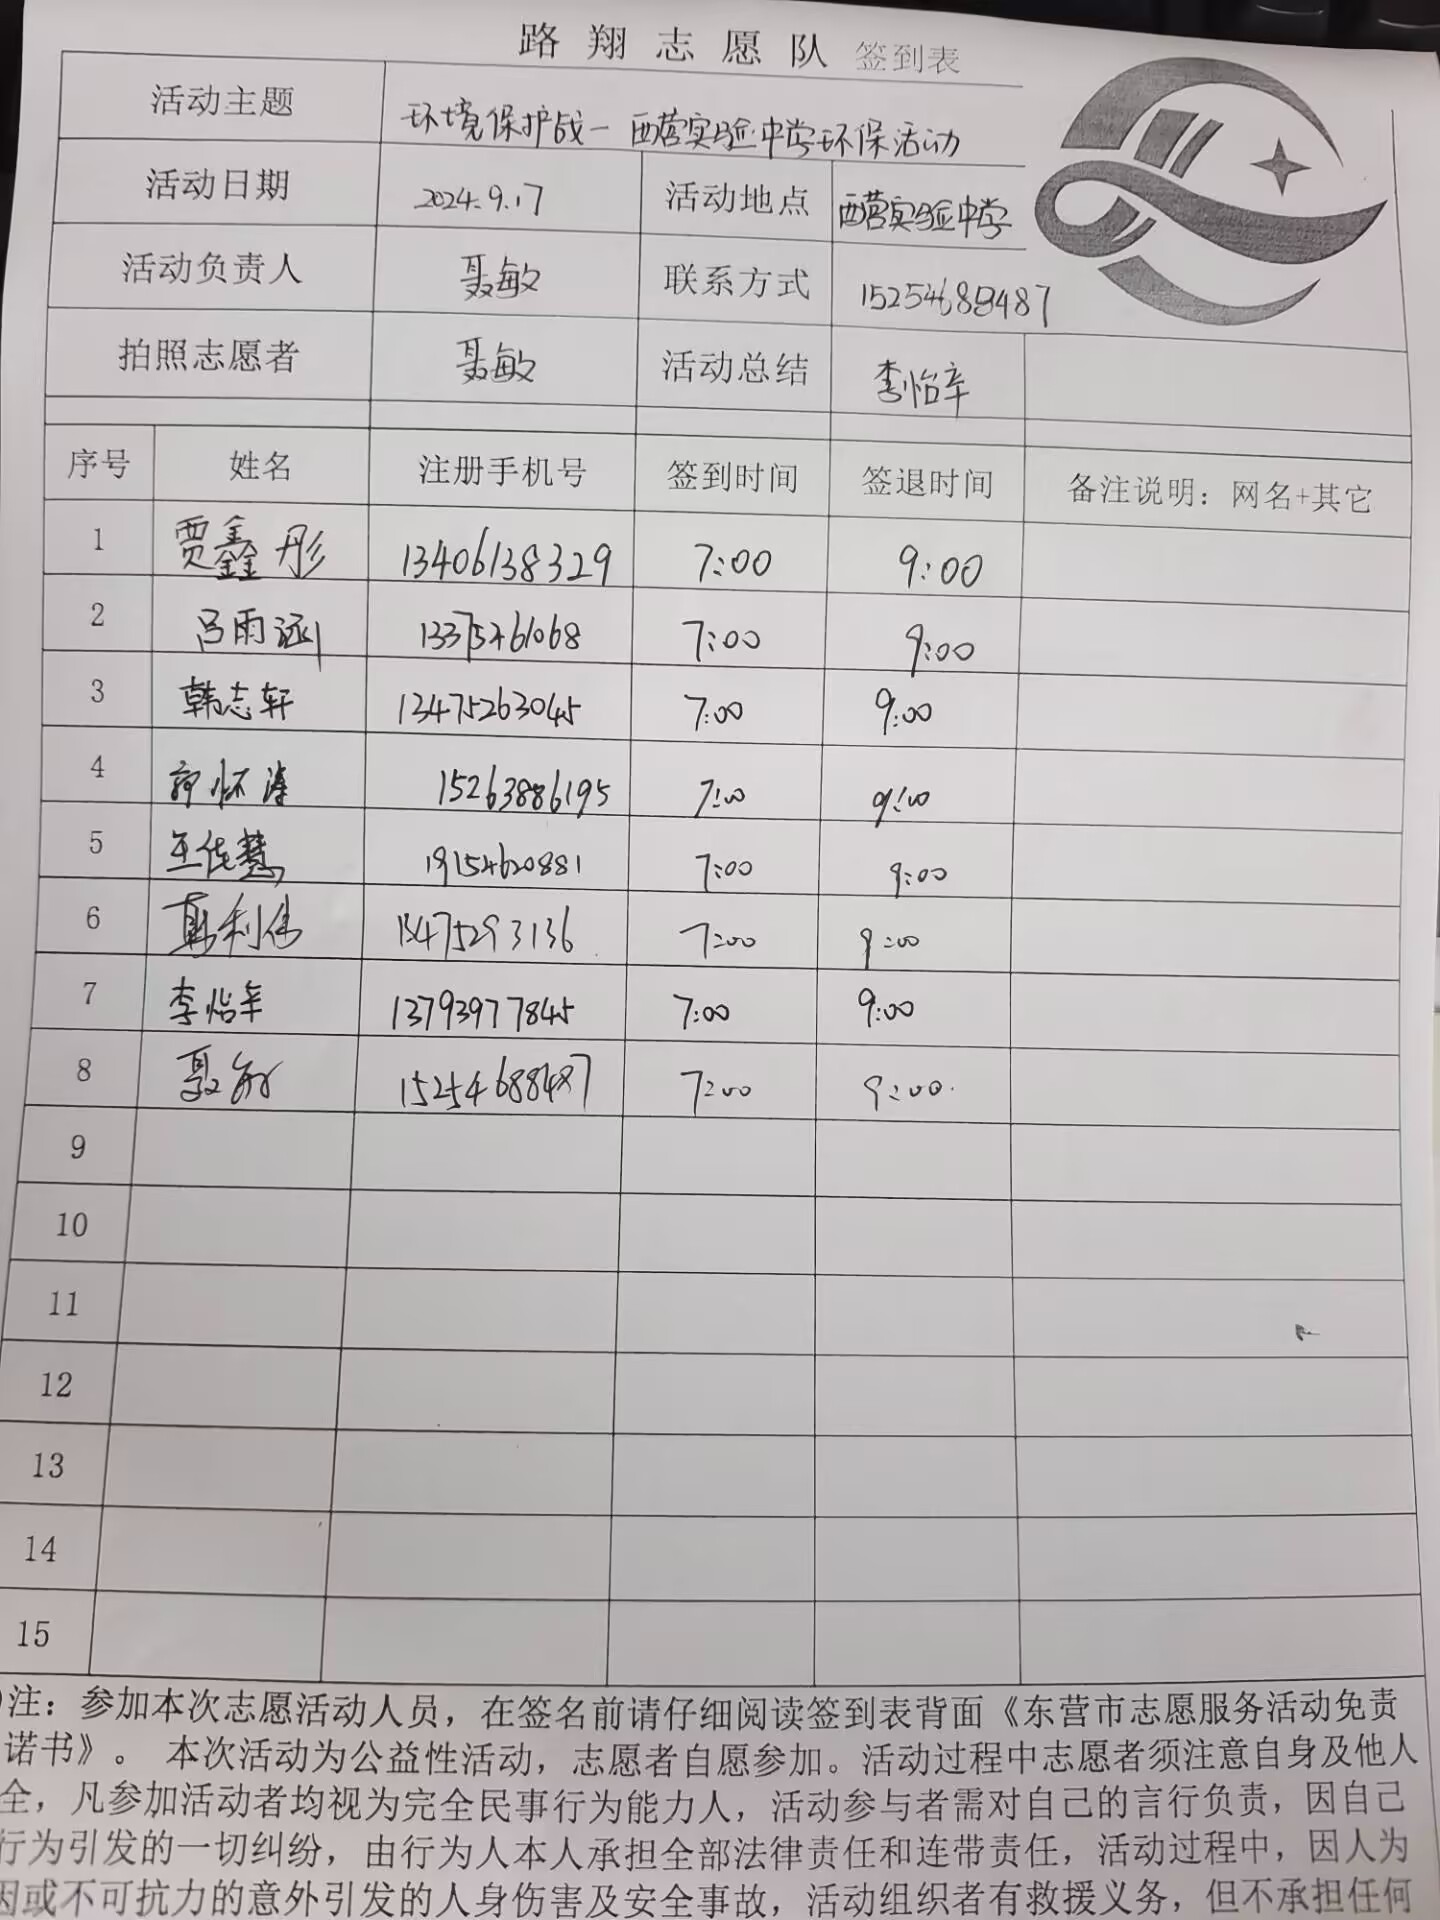 路翔志愿队 签到表
活动主题 环境保护战一西营实验中学环保活动
活动日期 2024.9.17 活动地点 西营实验中学
活动负责人 聂敏 联系方式 15254688487
拍照志愿者 聂敏 活动总结 李怡辛
序号 姓名 注册手机号 签到时间 签退时间 备注说明：网名+其它
1 贾鑫彤 13406138329 7:00 9:00
2 吕雨涵 13375461068 7:00 9:00
3 韩志轩 13475263045 7:00 9:00
4 郭怀涛 15263886195 7:00 9:00
5 王佳慧 19154620881 7:00 9:00
6 利伟 13475293136 7:00 9:00
7 李怡辛 13793977845 7:00 9:00
8 聂敏 15254688487 7:00 9:00
9
10
11
12
13
14
15
注：参加本次志愿活动人员，在签名前请仔细阅读签到表背面《东营市志愿服务活动免责
诺书》。 本次活动为公益性活动，志愿者自愿参加。活动过程中志愿者须注意自身及他人
全，凡参加活动者均视为完全民事行为能力人，活动参与者需对自己的言行负责，因自己
行为引发的一切纠纷，由行为人本人承担全部法律责任和连带责任，活动过程中，因人为
因或不可抗力的意外引发的人身伤害及安全事故，活动组织者有救援义务，但不承担任何